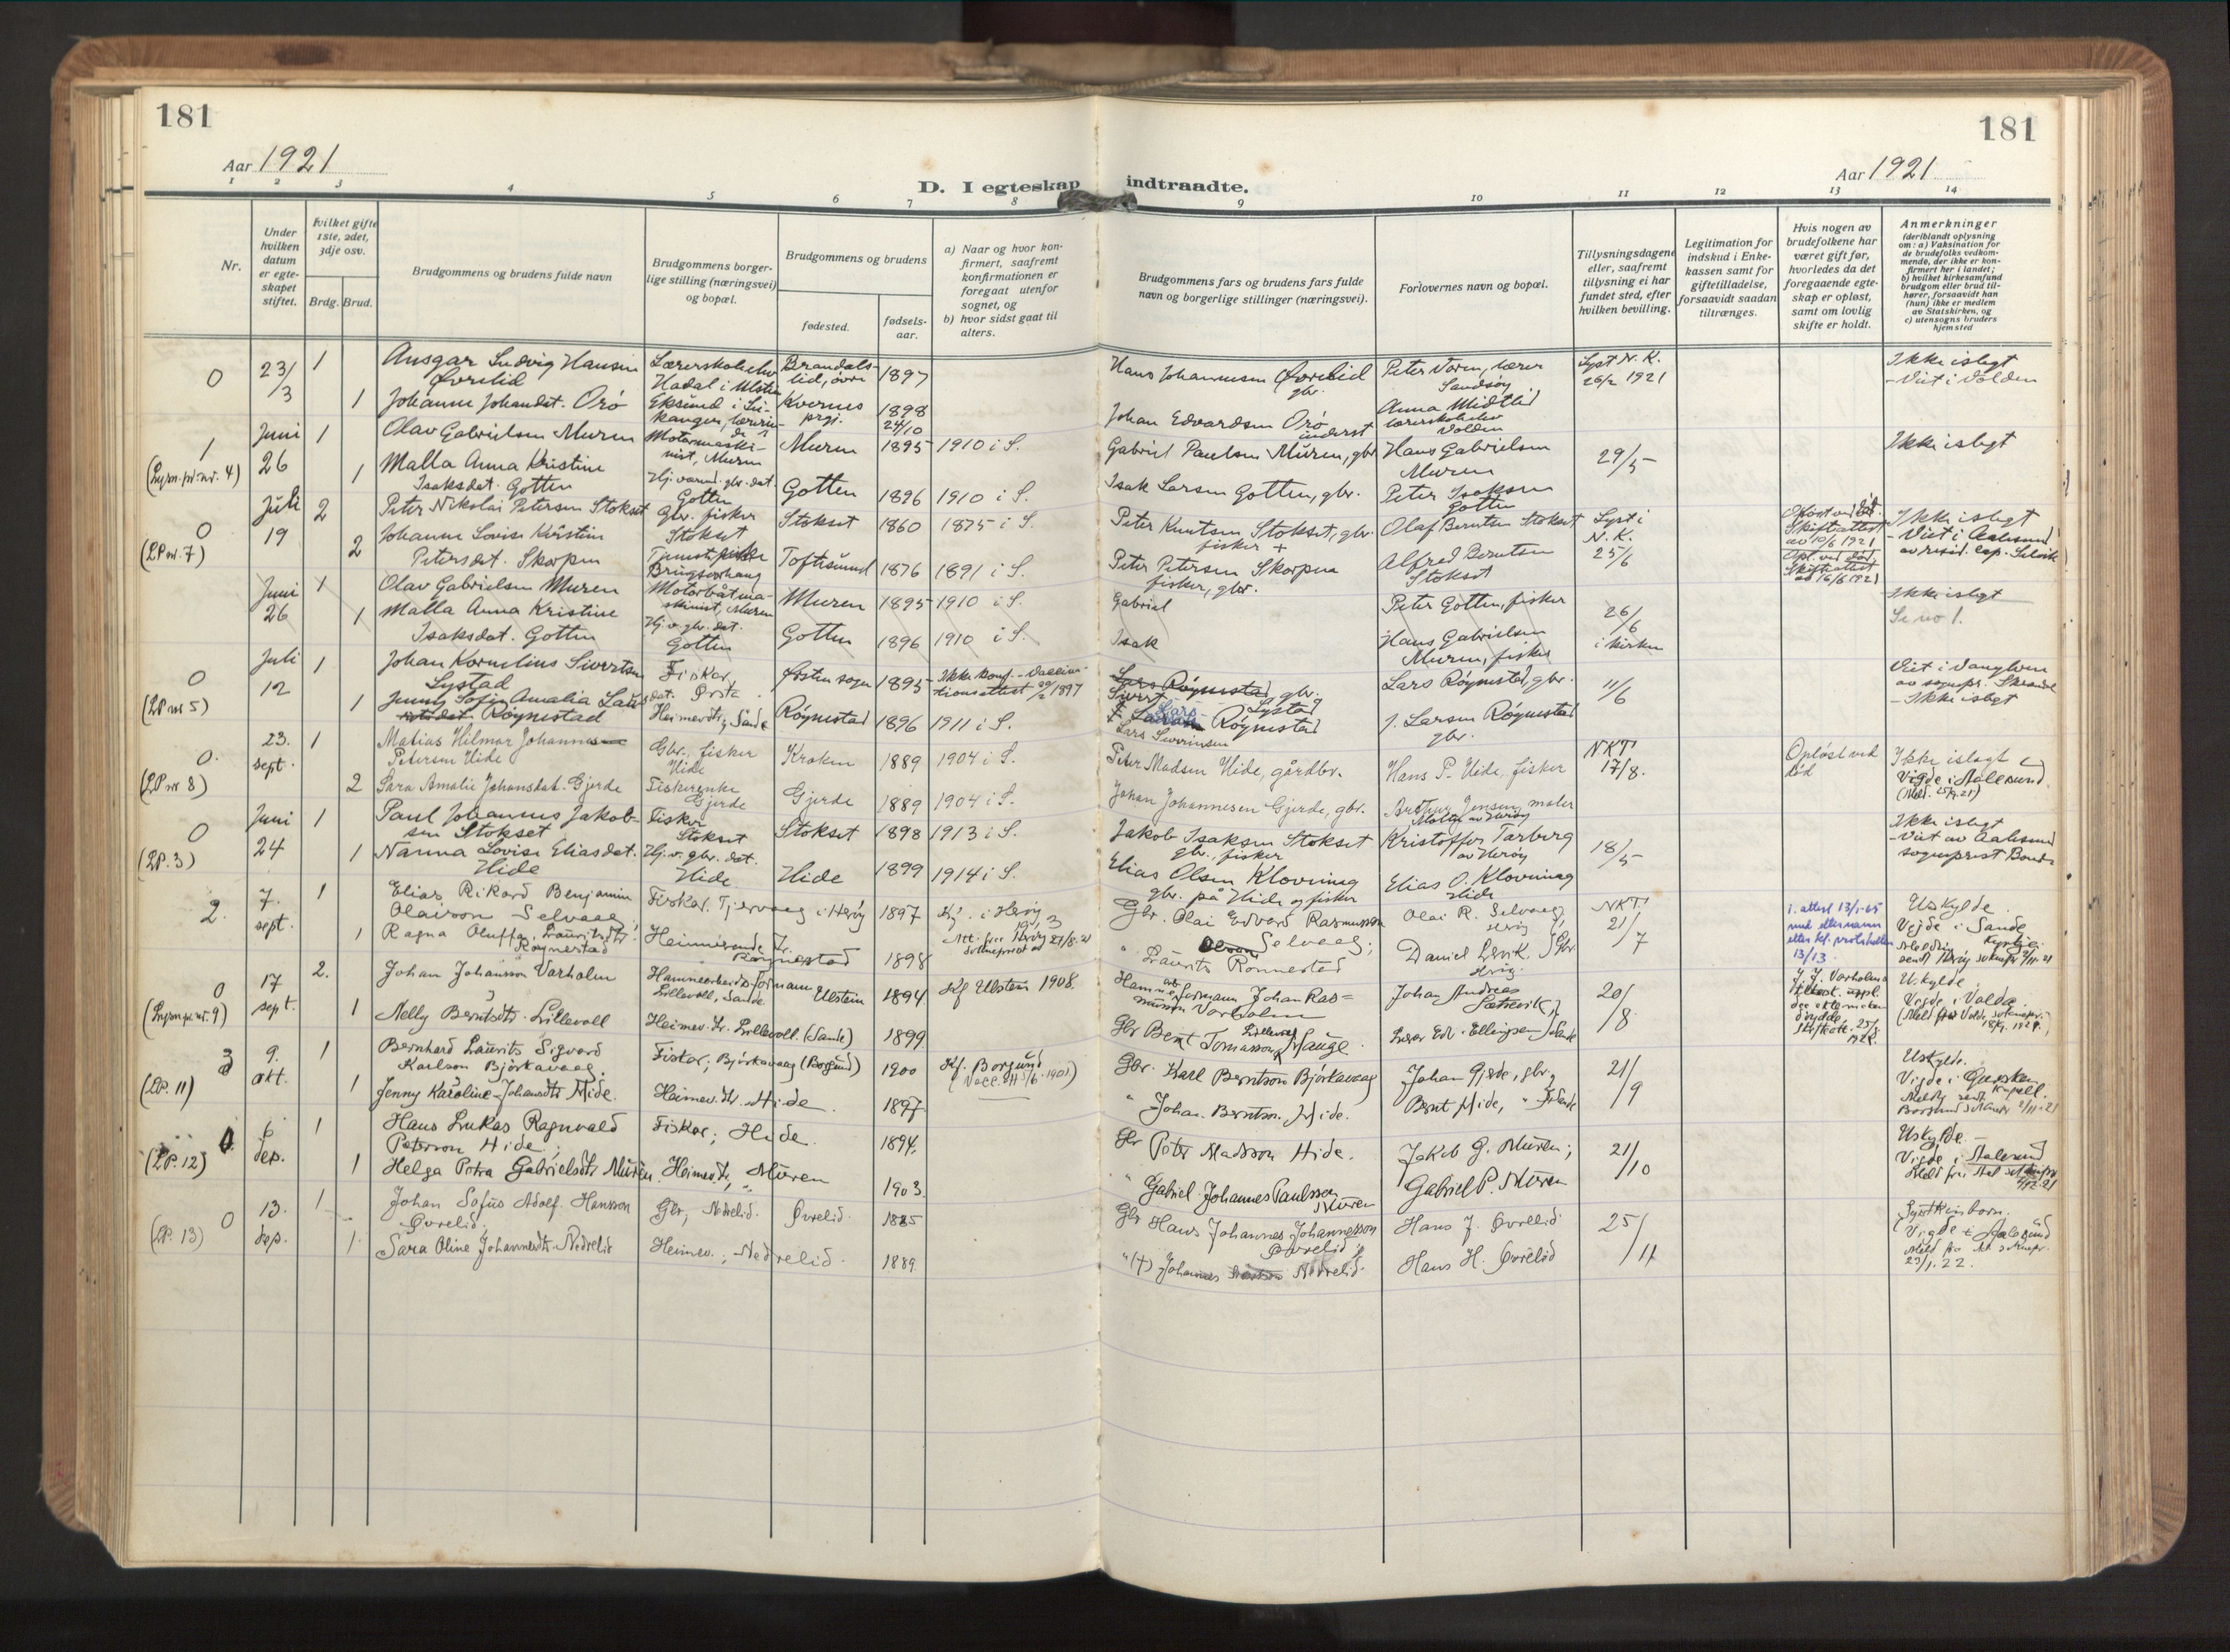 181
181
Aar 1921
Aar 1921
D. I egteskap indtraadte.
1 2 3 4 5 6 7 8 9 10 11 12 13 14
Nr.
Under
hvilken
datum
er egte-
skapet
stiftet.
Hvilket gifte
1ste, 2det,
3dje osv.
Brdg. Brud.
Brudgommens og brudens fulde navn
Brudgommens borger-
lige stilling (næringsvei)
og bopæl.
Brudgommens og brudens
fødested.
fødsels-
aar.
a) Naar og hvor kon-
firmert, saafremt
konfirmationen er
foregaat utenfor
sognet, og
b) hvor sidst gaat til
alters.
Brudgommens fars og brudens fars fulde
navn og borgerlige stillinger (næringsvei).
Forlovernes navn og bopæl.
Tillysningsdagene
eller, saafremt
tillysning ei har
fundet sted, efter
hvilken bevilling.
Legitimation for
indskud i Enke-
kassen samt for
giftetilladelse,
forsaavidt saadan
tiltrænges.
Hvis nogen av
brudefolkene har
været gift før,
hvorledes da det
foregaaende egte-
skap er opløst,
samt om lovlig
skifte er holdt.
Anmerkninger
(deriblandt oplysning
om: a) Vaksination for
de brudefolks vedkom-
mende, der ikke er kon-
firmert her i landet;
b) hvilket kirkesamfund
brudgom eller brud til-
hører, forsaavidt han
(hun) ikke er medlem
av Statskirken, og
c) utensogns bruders
hjemsted
0 23/3 1 Ansgar Ludvig Hansen
Øvrelid
Brandals-
lid, øvre 1897
Hans Johannesen Øvrelid
gbr.
Peter Voren, lærer
Sandsøy
Lyst N. K.
26/2 1921
Ikke i slegt
- Viet i Volden
1 Johanne Johansdat. Orø
Kvernes
prgj. 1898
24/10
Johan Edvardsen Orø
inderst
Anna Midtlid
lærerskoleelev
Volden
1 Juni
26 1 Olav Gabrielsen Muren
Motormaski-
nist, Muren
Muren 1895 1910 i S.
Gabriel Paulsen Muren, gbr.
Hans Gabrielsen
Muren
29/5
Ikke i slegt
1 Malla Anna Kristine
Isaksdat. Gotten
Hj. værend. gbr. dat.
Gotten
Gotten 1896 1910 i S.
Isak Larsen Gotten, gbr.
Peter Isaksen
Gotten
0 (LP nr. 7) Juli
19 2 Peter Nikolai Petersen Stokset
Gbr. fisker
Stokset
Stokset 1860 1875 i S.
Peter Knutsen Stokset, gbr.
fisker +
Olaf Berntsen Stokset
Lyst i
N. K.
25/6
Opløst ved død.
Skifteattest
av 10/6 1921
Ikke i slegt
- Viet i Aalesund
av resid. cap. Selvik
2 Johanne Lovise Kirstine
Petersdat. Skorpen
Toftesund 1876 1891 i S.
Peter Petersen Skorpen
fisker, gbr.
Alfred Berntsen
Stokset
Opl. ved død.
Skifteattest
av 16/6 1921
Juni
26 1 Olav Gabrielsen Muren
Motorbåtma-
skinist, Muren
Muren 1895 1910 i S.
Gabriel
Peter Gotten, fisker
26/6
i kirken
Ikke i slegt
Se no 1.
1 Malla Anna Kristine
Isaksdat. Gotten
Hj. v. gbr. dat.
Gotten
Gotten 1896 1910 i S.
Isak
Hans Gabrielsen
Muren, fisker
0 (LP nr 5) Juli
12 1 Johan Kornelius Sivertsen
Lystad
Fisker,
Ørsta
Ørsten sogn 1895
Lars Røynestad, gbr.
Sivert Lystad
Lars Røynestad, gbr.
11/6
Viet i Vanylven
av sognepr. Strande
- Ikke i slegt
1 Jenny Sofie Amalia Laus
dat. Røynestad
Røynestad 1896 1911 i S.
Lars Røynestad
Lars Severinsen
J. Larsen Røynestad
gbr.
0. (LP nr 8) 23.
sept. 1 Matias Hilmar Johannes
Petersen Hide
Gbr., fisker
Hide
Kroken 1889 1904 i S.
Peter Madsen Hide, gårdbr.
Hans P. Hide, fisker
NKT!
17/8.
Opløst ved
død
Ikke i slegt
Vigde i Aalesund.
2 Sara Amalie Johansdat. Gjerde
Fiskerenke
Gjerde
Gjerde 1889 1904 i S.
Johan Johannesen Gjerde, gbr.
Arthur Jensen, maler
0 (LP. 3) Juni
24 1 Paul Johannes Jakob-
sen Stokset
Fisker
Stokset
Stokset 1898 1913 i S.
Jakob Isaksen Stokset
gbr., fisker
Kristoffer Tarberg
av Herøy
18/5
Ikke i slegt
- Viet av Aalesund
sogneprest Bonde
1 Nanna Lovise Eliasdat.
Hide
Hj. v. gbr. dat.
Hide
Hide 1899 1914 i S.
Elias Olsen Klovning
gbr. på Hide og fisker
Elias O. Klovning
Hide
2. 7.
sept. 1 Elias Rikard Benjamin
Olaisson Selvaag;
Fiskar. Tjervaag i Herøy 1897
Kf. i Herøy
Gbr. Olai Edvard Rasmusson
Selvaag;
Olai R. Selvaag,
Herøy
NKT!
21/7
i. attest 13/1-65
Uskylde.
Vigde i Sande
1 Ragna Oluffa Lauritsdtr.
Røynestad
Heimeverande,
Røynestad 1898
Laurits Rønnestad
Daniel Lervik, Gbr.
Herøy.
0 17
sept. 2. Johan Johansson Varholm
Hamnearbeids-formann
Lillevoll, Sande.
Ulstein 1894 Kf Ulstein 1908.
Hamneformann Johan Ras-
musson Varholm
Johan Andreas
Sætrevik,
20/8
J. J. Varholms
Uskylde
Vigde i Volda.
1 Nelly Berntsdtr. Lillevoll
Heimev. Lillevoll. (Sande) 1899.
Gbr Bernt Tomasson Hauge.
Lillevoll
Ellingsen, Sande
3 (LP. 11) 9.
okt. 1 Bernhard Laurits Sigvard
Karlson Bjørkavaag.
Fiskar; Bjørkavaag (Borgund) 1900 Kf. Borgund
Gbr. Karl Berntson Bjørkavaag
Johan Gjerde, gbr.,
21/9
Uskylde.
Vigde i Gursken
kapell.
1 Jenny Karoline Johansdtr Hide.
Heimev. Hide. 1897.
" Johan Berntson Hide.
Bernt Hide, " Sande
(LP. 12) 6
des. 1 Hans Lukas Ragnvald
Peterson Hide;
Fiskar; Hide. 1894.
Gbr Peter Madsson Hide.
Jakob G. Muren;
21/10
Uskylde. -
Vigde i Aalesund
1 Helga Petra Gabrielsdtr Muren.
Heimev., Muren 1903.
" Gabriel Johannes Paulsson
Muren
Gabriel P. Muren
0 (LP. 13) 13.
des. 1 Johan Sofus Adolf Hansson
Øvrelid;
Gbr, Nedrelid. Øvrelid. 1885
Gbr Hans Johannes Johannesson
Øvrelid;
Hans J. Øvrelid
25/11
Syskinborn.
Vigde i Aalesund
1 Sara Oline Johannesdtr. Nedrelid
Heimev.; Nedrelid. 1889.
" (+) Johannes Nedrelid.
Hans H. Øvrelid
29/1.22.